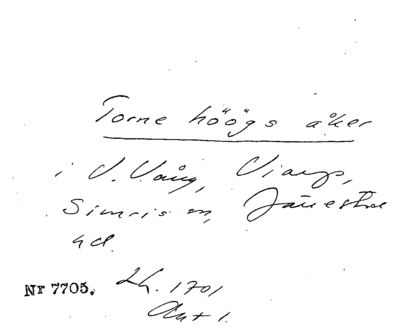 Torne höögs åker
i V. Vång, Viarp,
Simris sn, Järrestad
hd.
Nr 7705. Lh. 1701
Ant 1.